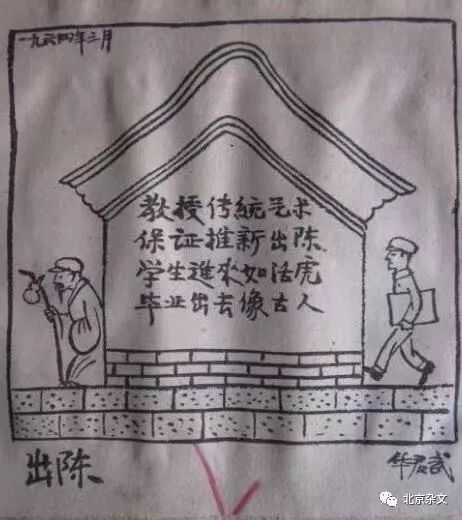 一九六四年三月
教授传統艺术
保证推新出陈
学生進來如活虎
毕业出去像古人
出陈
华君武
北京杂文